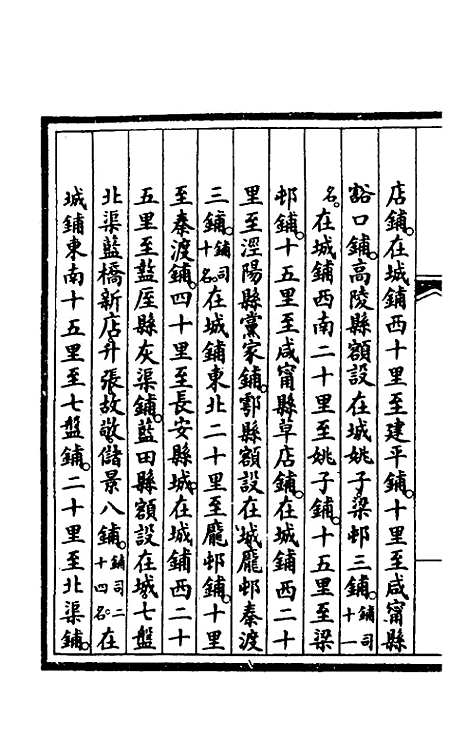 店鋪。在城鋪西十里至建平鋪。十里至咸甯縣
豁口鋪。高陵縣額設在城姚子梁邨三鋪。鋪司十一
名。在城鋪西南二十里至姚子鋪。十五里至梁
邨鋪。十五里至咸甯縣草店鋪。在城鋪西二十
里至涇陽縣黨家鋪。鄠縣額設在城龐邨秦渡
三鋪。鋪司十名。在城鋪東北二十里至龐邨鋪。十里
至秦渡鋪。四十里至長安縣城。在城鋪西二十
五里至盩厔縣灰渠鋪。藍田縣額設在城七盤
北渠藍橋新店。升張故敬儲景八鋪。鋪司二十四名。在
城鋪東南十五里至七盤鋪。二十里至北渠鋪。